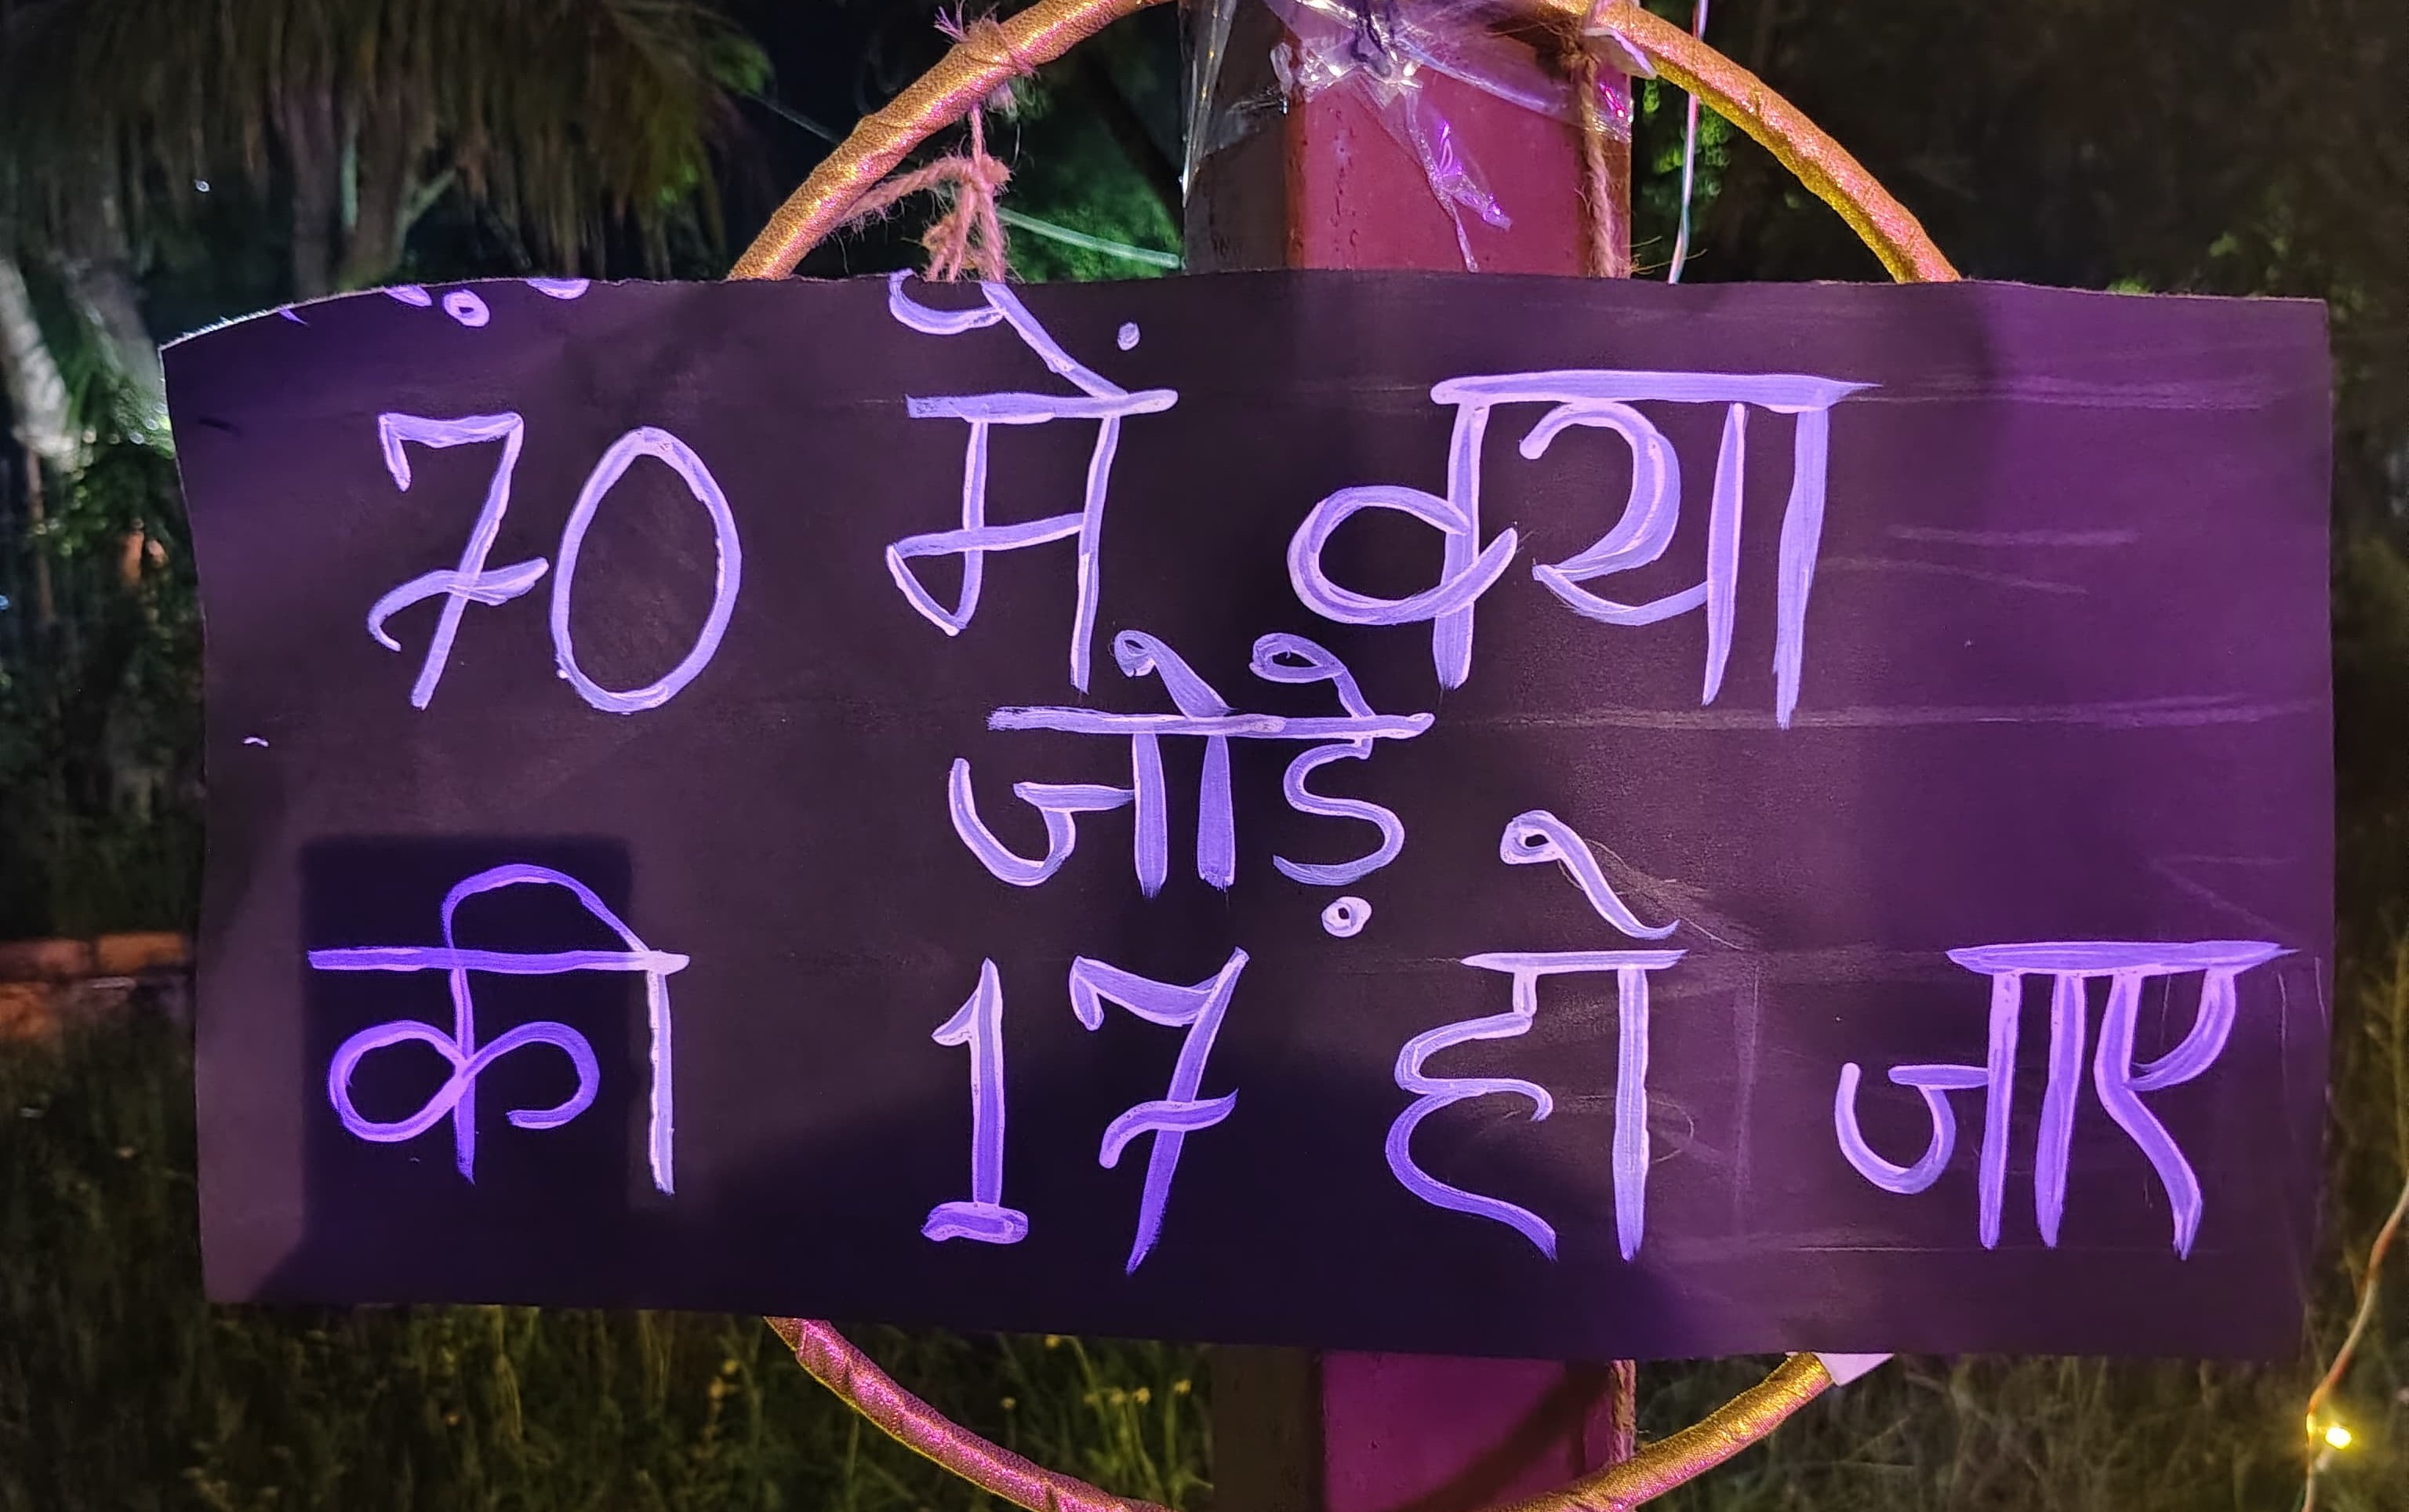 70 में क्या
जोड़े
की 17 हो जाए